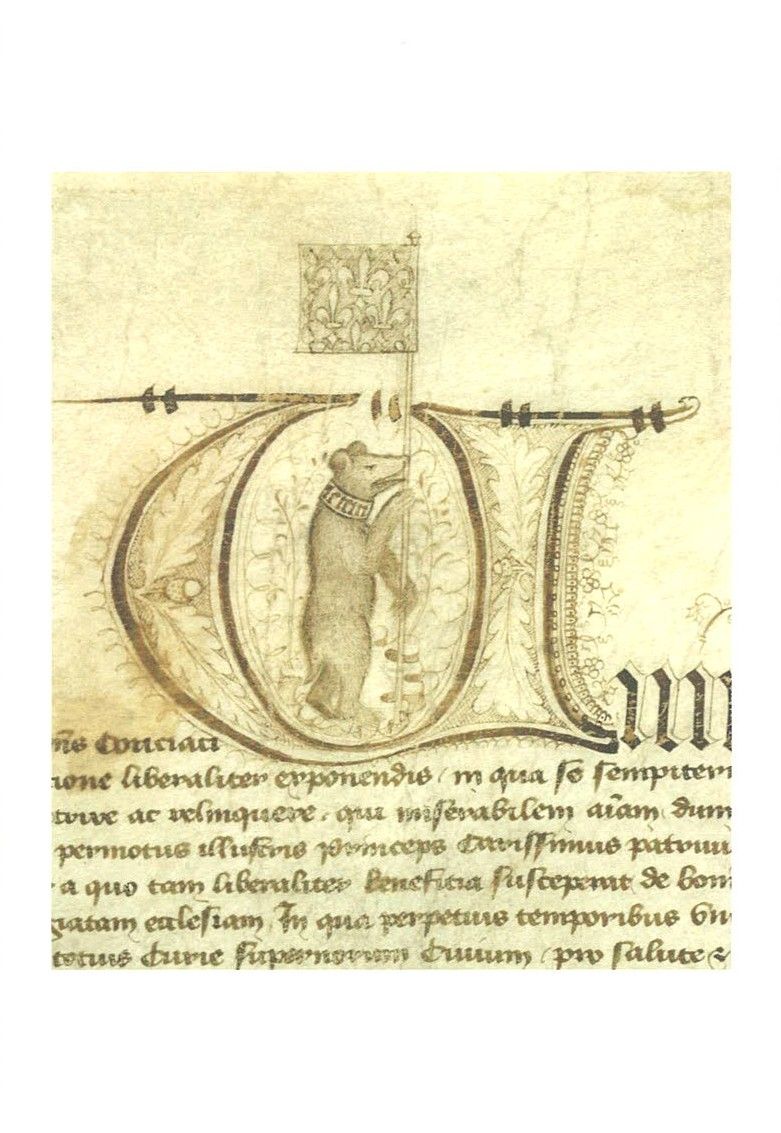 U
n̄s Conciaci
cione liberaliter exponendis in qua se sempitern
ac relinquere. qui miserabilem aīam dum
permotus illustris princeps Carissimus patruu
a quo tam liberaliter beneficia susceperat de bon
giatam ecclesiam. In qua perpetuis temporibus vn
totius Curie supernorum Civium pro salute &